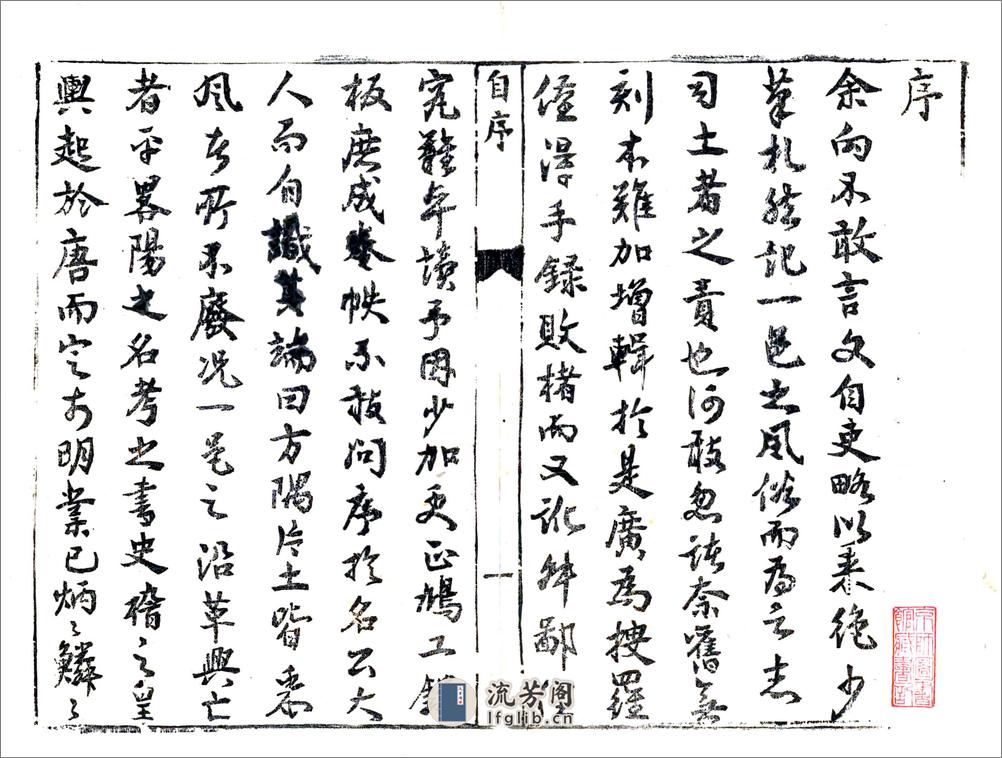 序
余向不敢言文自吏略以来绝少
筆札然記一邑之風俗而為之志
司土者之責也何敢忽諸奈舊無
刻本難加增輯於是廣為搜羅
僅得手録敗楮而又訛舛鄙
自序
一
究難卒讀予因少加更正鳩工
板庶成卷帙不敢問序於名公大
人而自識其端曰方隅片土皆采
風者所不廢况一邑之沿革興亡
者乎畧陽之名考之書史稽之皇
輿起於唐而定於明業已炳〻鱗〻
京師圖書
館藏書
流芳阁
lfglib.cn